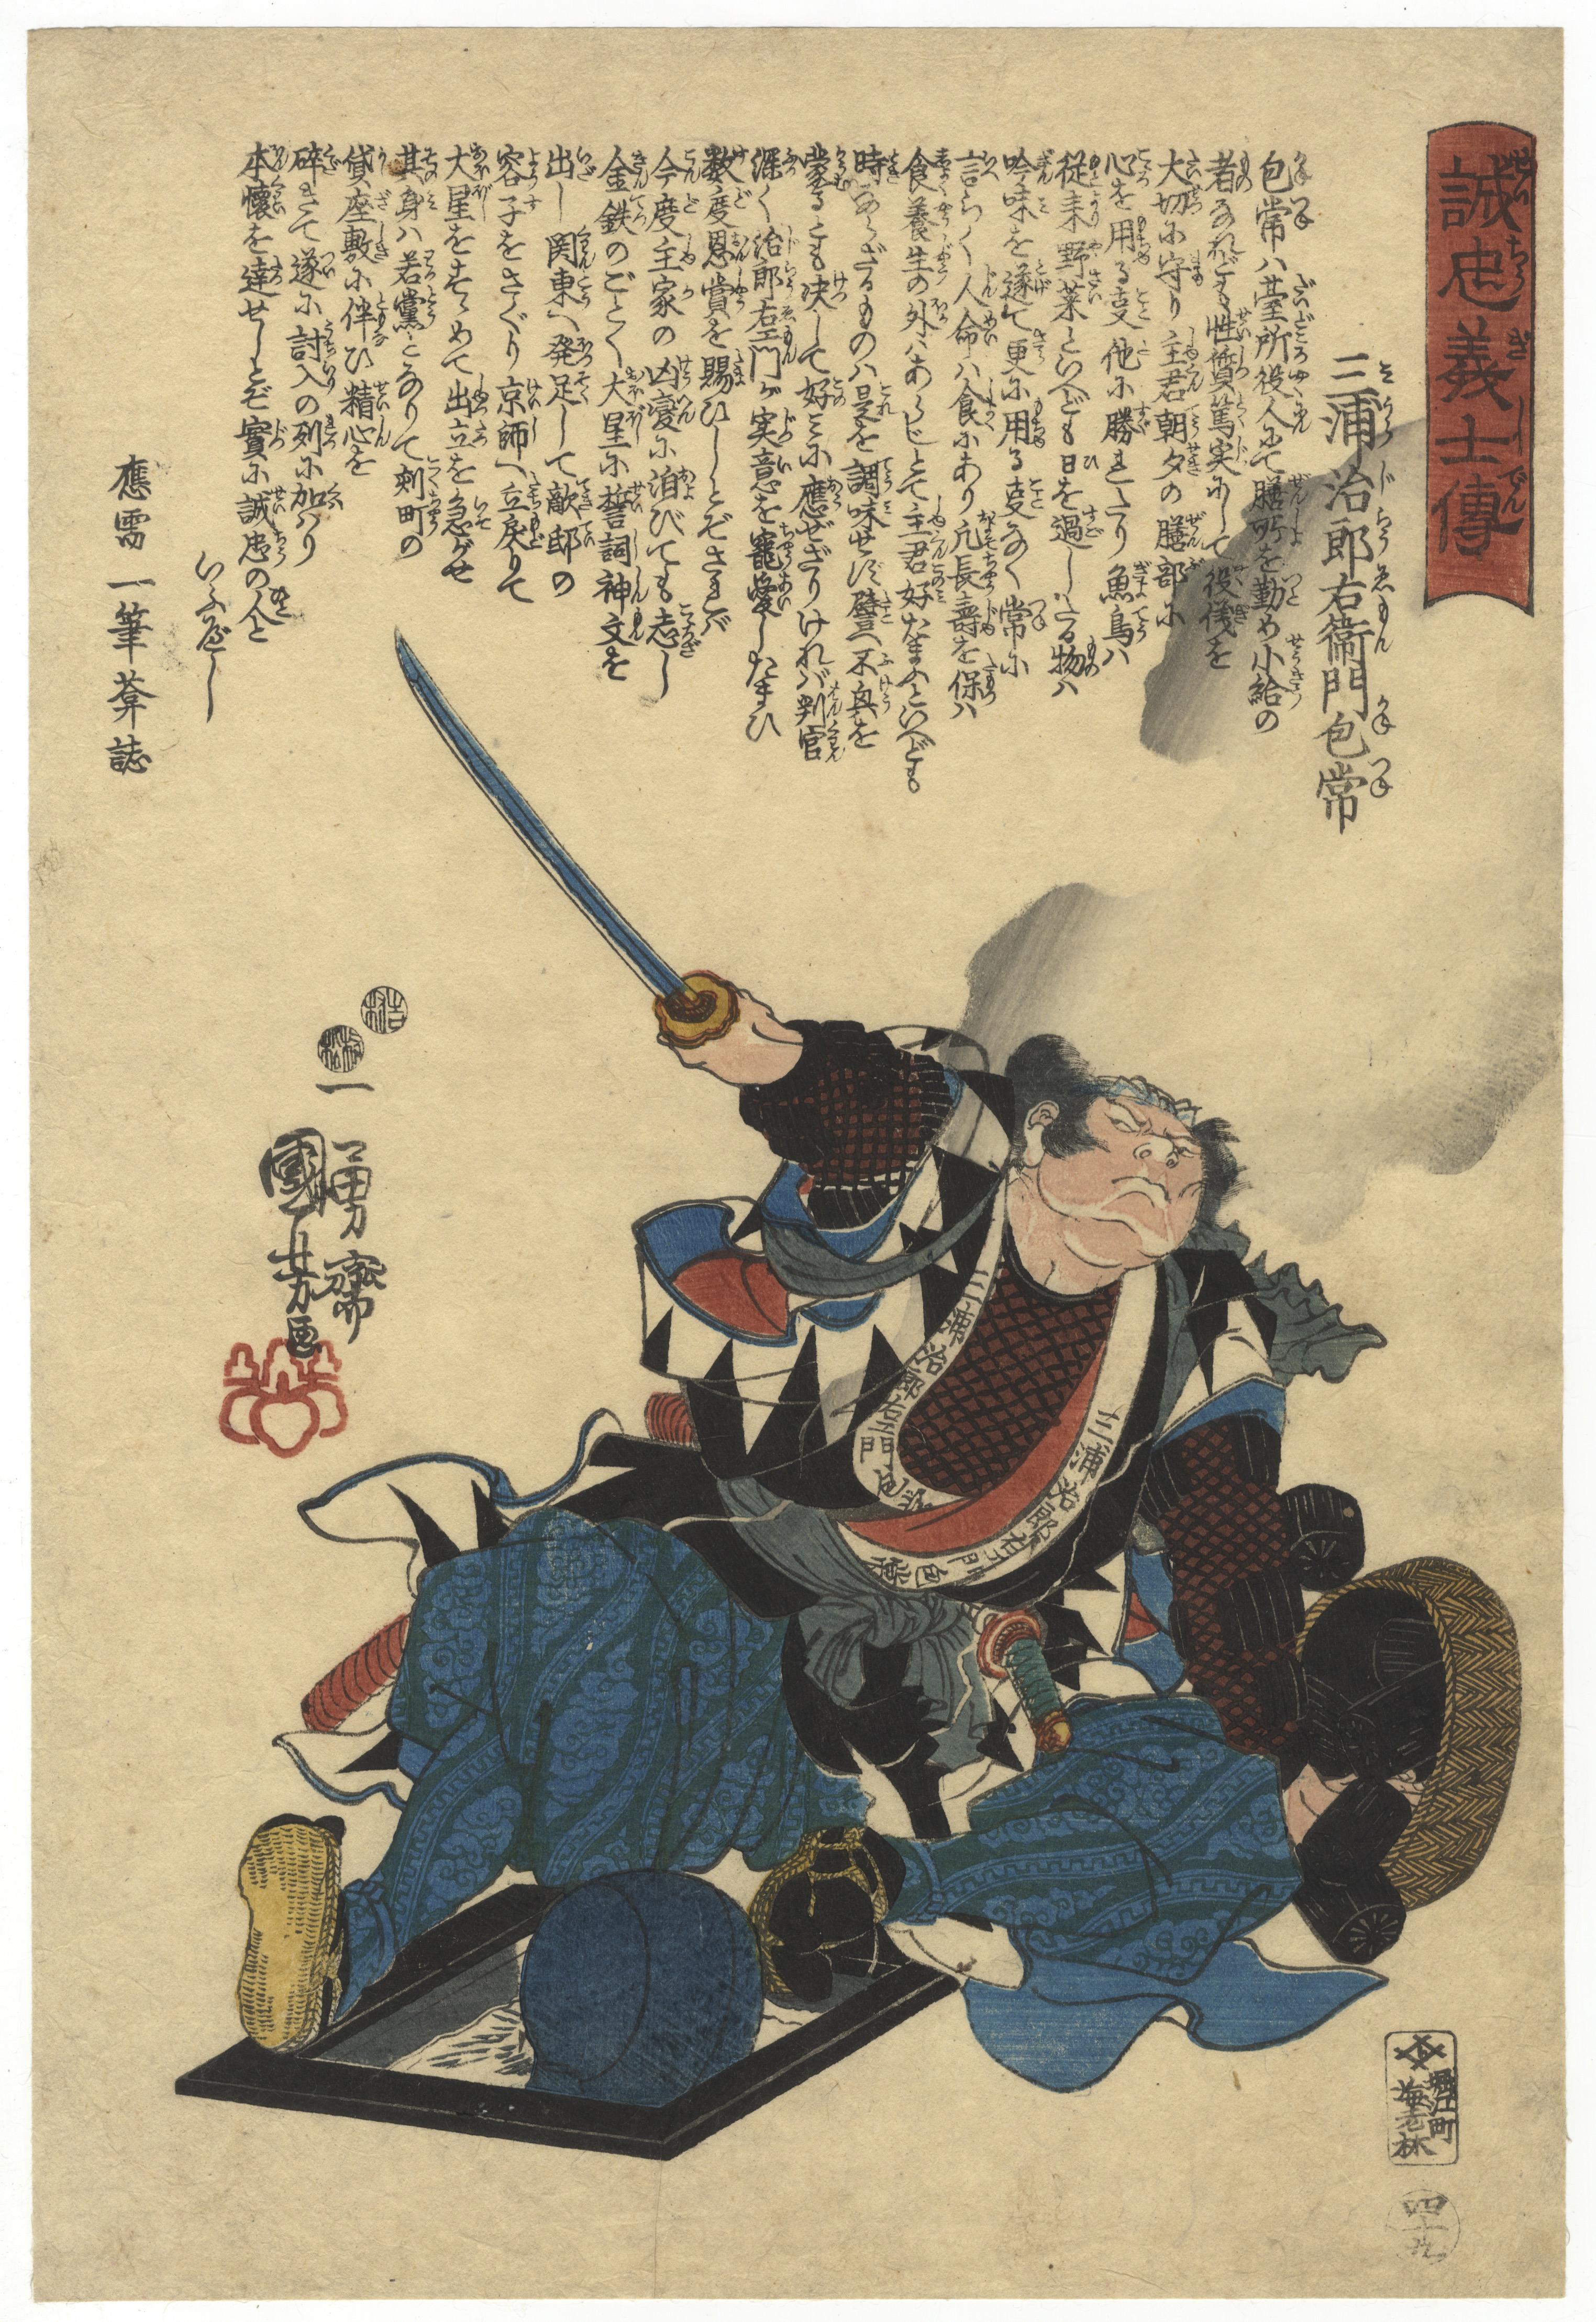 誠忠義士傳
三浦治郎右衛門包常
包常ハ臺所役人にて膳所を勤め小給の
者なれども性質篤実にして役儀を
大切に守り主君朝夕の膳部に
心を用る支他に勝れたり魚鳥ハ
従来野菜といへども日を過したる物ハ
吟味を遂て更に用る支なく常に
言らく人命ハ食にあり凡長壽を保ハ
食養生の外ハあらじとて主君好たまふといへども
時ならざるものハ是を調味せず譬へ不興を
蒙るとも决して好ミに應ぜざりけれバ判官
深く治郎右エ門が実意を寵愛したまひ
数度恩賞を賜ひしとぞされバ
今度主家の凶変に泊びても志し
金鉄のごとく大星に誓詞神文を
出し関東へ発足して敵邸の
容子をさぐり京師へ立戻りて
大星をすゝめて出立を急がせ
其身ハ若黨となりて剣町の
貸座敷に伴ひ精心を
碎きて遂に討入の列に加ハり
本懐を達せしとぞ實に誠忠の人と
いふ応し
應需 一筆菴誌
吉村
村松
一勇齋
國芳画
三浦治郎右エ門包常
三浦治郎右エ門包常
堀江町
海老林
四十九